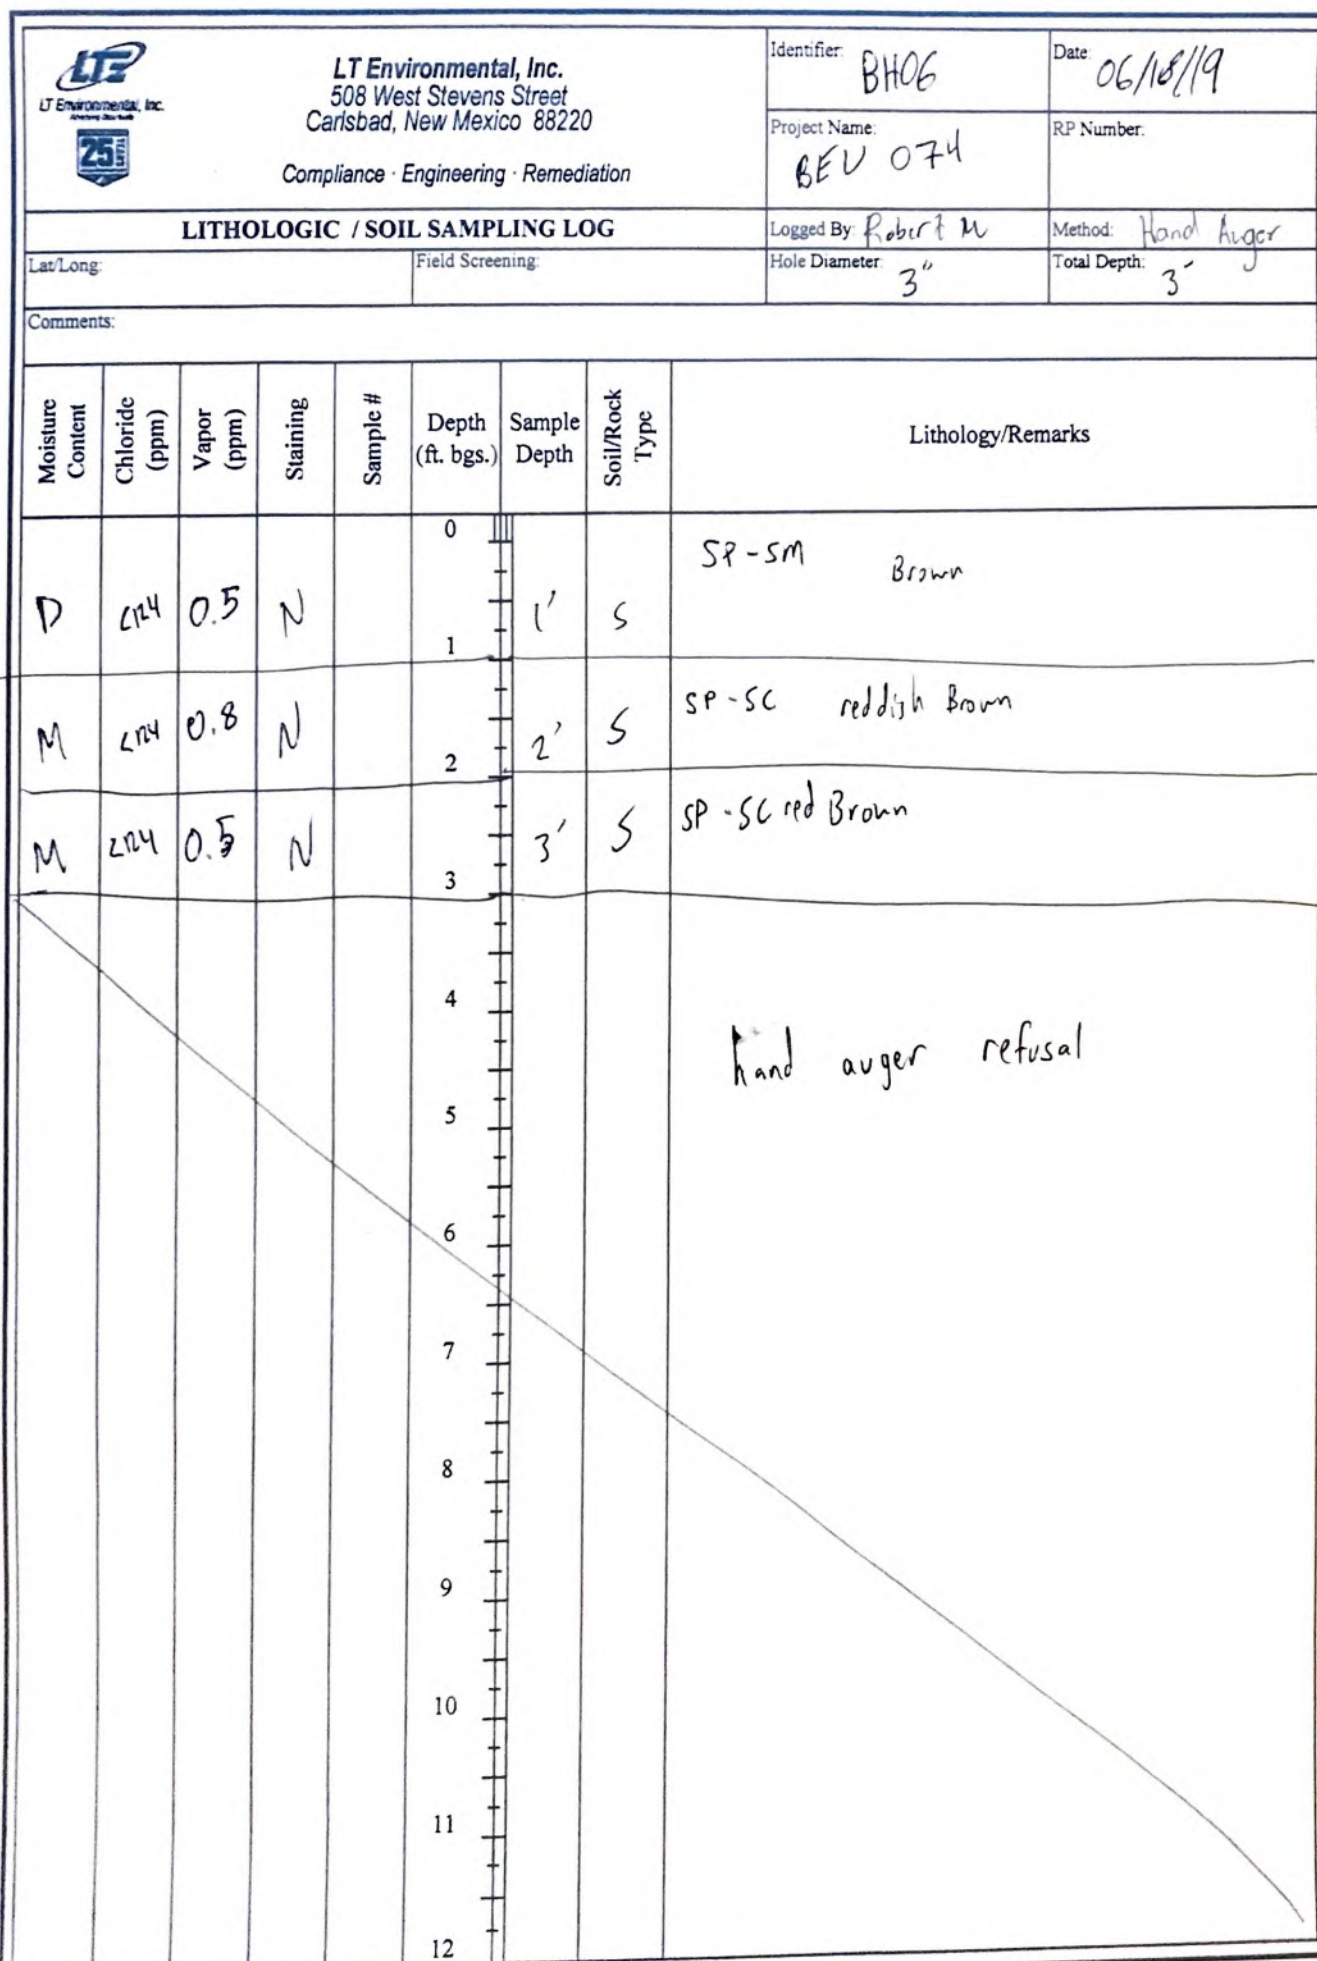 LTE
LT Environmental, Inc.
25 YEARS
LT Environmental, Inc.
508 West Stevens Street
Carlsbad, New Mexico 88220
Compliance · Engineering · Remediation
Identifier: BH06
Date: 06/18/19
Project Name: BEU 074
RP Number:
LITHOLOGIC / SOIL SAMPLING LOG
Logged By: Robert M
Method: Hand Auger
Lat/Long:
Field Screening:
Hole Diameter: 3"
Total Depth: 3'
Comments:
Moisture Content
Chloride (ppm)
Vapor (ppm)
Staining
Sample #
Depth (ft. bgs.)
Sample Depth
Soil/Rock Type
Lithology/Remarks
0
D <124 0.5 N 1' S SP-SM Brown
1
M <124 0.8 N 2' S SP-SC reddish Brown
2
M <124 0.5 N 3' S SP-SC red Brown
3
4
hand auger refusal
5
6
7
8
9
10
11
12